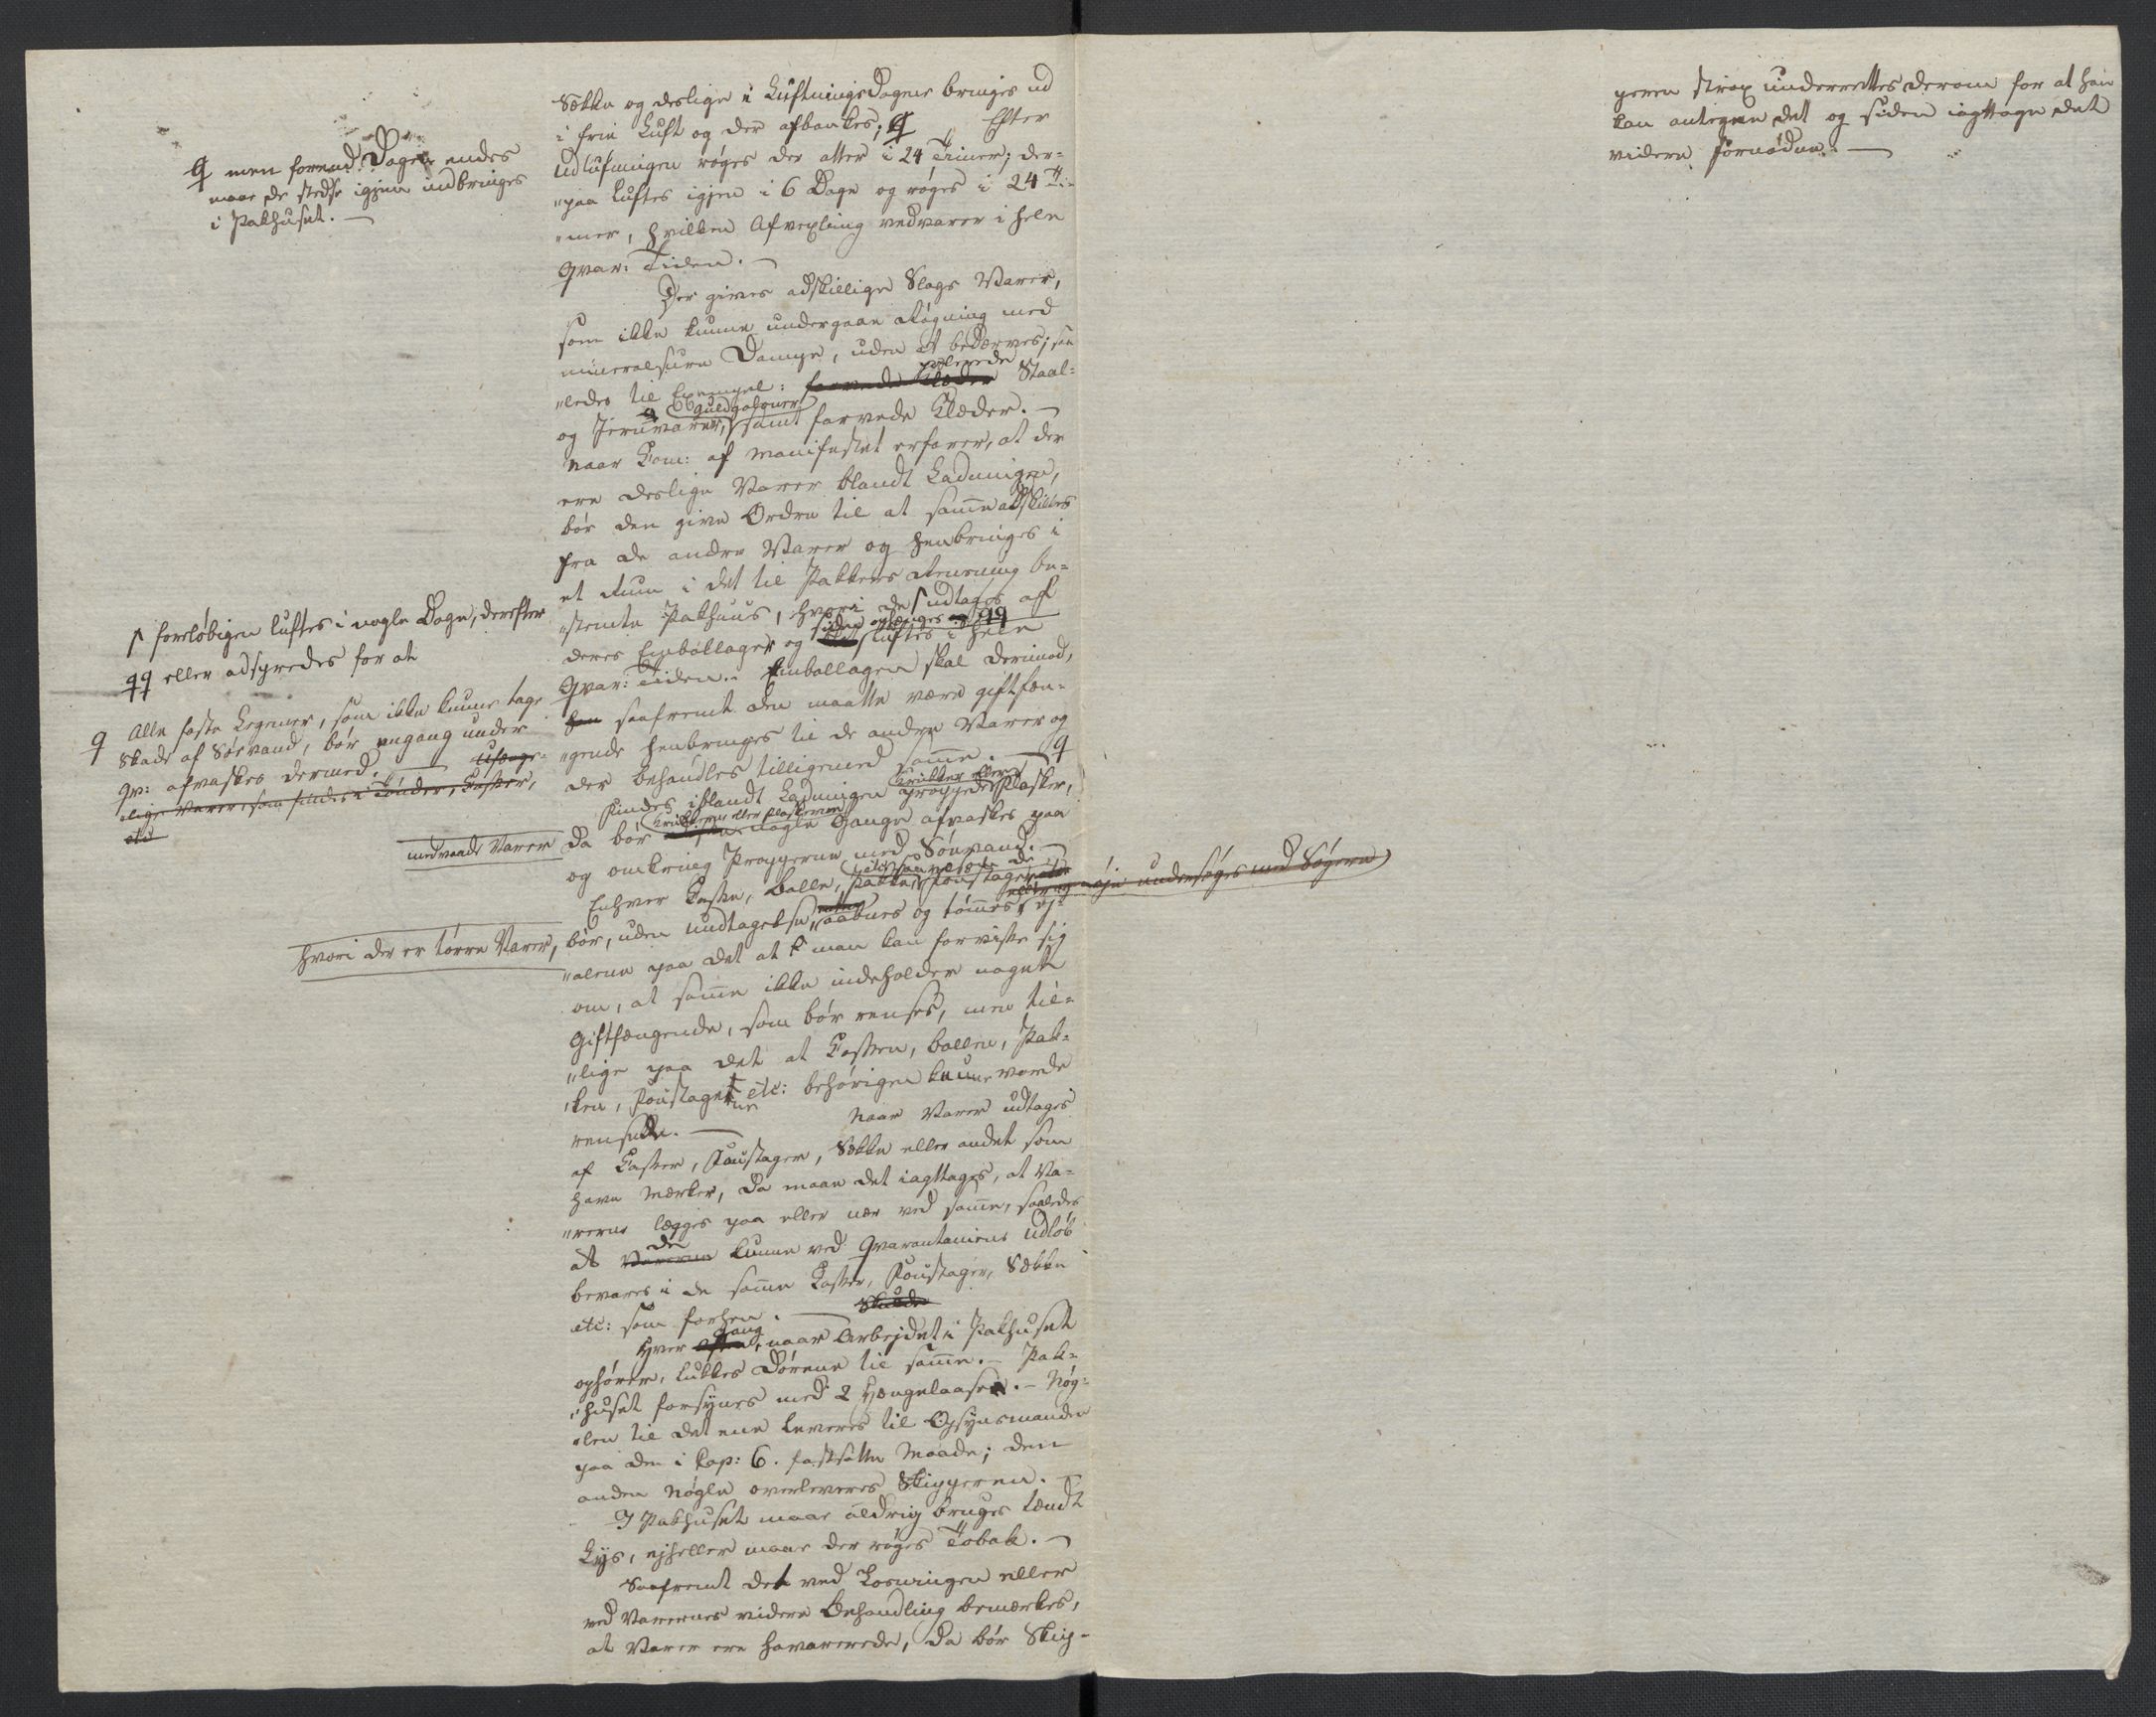 Sække og deslige i Luftnings Dagene bringes ud
i frie Luft og der afbankes; q Efter
Udluftningen røges der atter i 24 Timer; der-
"paa luftes igjen i 6 Dage og røges i 24 Ti-
"mer, hvilken Afvexling vedvarer i hele
Qvar: Tiden. —
Der gives adskillige Slags Varer,
som ikke kunne undergaae Røgning med
mineralsure Dampe, uden at bedærves; saa
"ledes til Exempel: farvede Klæder polerede Staal-
og Jernvarer, Guldgaloner samt farvede Klæder. —
Naar Com: af Manifestet erfarer, at der
ere deslige Varer blandt Ladningen,
bør den give Ordre til at samme adskilles
fra de andre Varer og henbringes i
et Rum i det til Pakkers Rensning be-
"stemte Pakhuus, hvori de udtages af
deres Emballager og siden ophænges qq luftes i hele
Qvar: Tiden. Emballagen skal derimod,
saafremt den maatte være giftfæn-
"gende henbringes til de andre Varer og
der behandles tilligemed samme. — q
Findes iblandt Ladningen Krukker eller proppede Flasker,
da bør Krukkerne eller Flaskerne nogle Gange afvaskes paa
og omkring Propperne med Søevand. —
Enhver Kasse, Balle, Pakke, Foustager etc:
bør, uden Undtagelse, aabnes og tømmes, ej-
eller og nøje undersøges med Søgere
"alene paa det at man kan forvisse sig
om, at samme ikke indeholder noget
Giftfængende, som bør renses, men til-
"lige paa det at Kassen, Ballen, Pak-
"ken, Foustagerne etc: behørigen kunne vorde
rensede. — Naar Varer udtages
af Kasser, Foustager, Sække eller andet som
have Mærker, da maae det iagttages, at Va-
"rerne lægges paa eller nær ved samme, saaledes
at Varerne de kunne ved Qvarantainens Udløb
bevares i de samme Kasser, Foustager, Sække
etc: som forhen. —
Hver Aften Gang, naar Arbejdet i Pakhuset
ophører, lukkes Dørene til samme. — Pak-
"huset forsynes med 2 Hængelaase. — Nøg-
"len til det ene leveres til Opsynsmanden
paa den i Cap: 6. fastsatte Maade; den
anden Nøgle overleveres Skipperen. —
I Pakhuset maae aldrig bruges tændt
Lys, ejheller maae der røges Tobak. —
Saafremt det ved Losningen eller
ved Varernes videre Behandling bemærkes,
at Varer ere havarerede, da bør Skip-
q men forend Dagen endes
maae de stedse igjen indbringes
i Pakhuset. —
foreløbigen luftes i nogle Dage, derefter
qq eller adspredes for at
q Alle faste Legemer, som ikke kunne tage
Skade af Søevand, bør engang under
Qv: afvaskes dermed. —
"lige Varer, som findes i Tønder, Kasser,
etc
medvaade Varer
hvori der er tørre Varer,
peren strax underrettes derom for at han
kan antegne det og siden iagttage det
videre fornødne. —